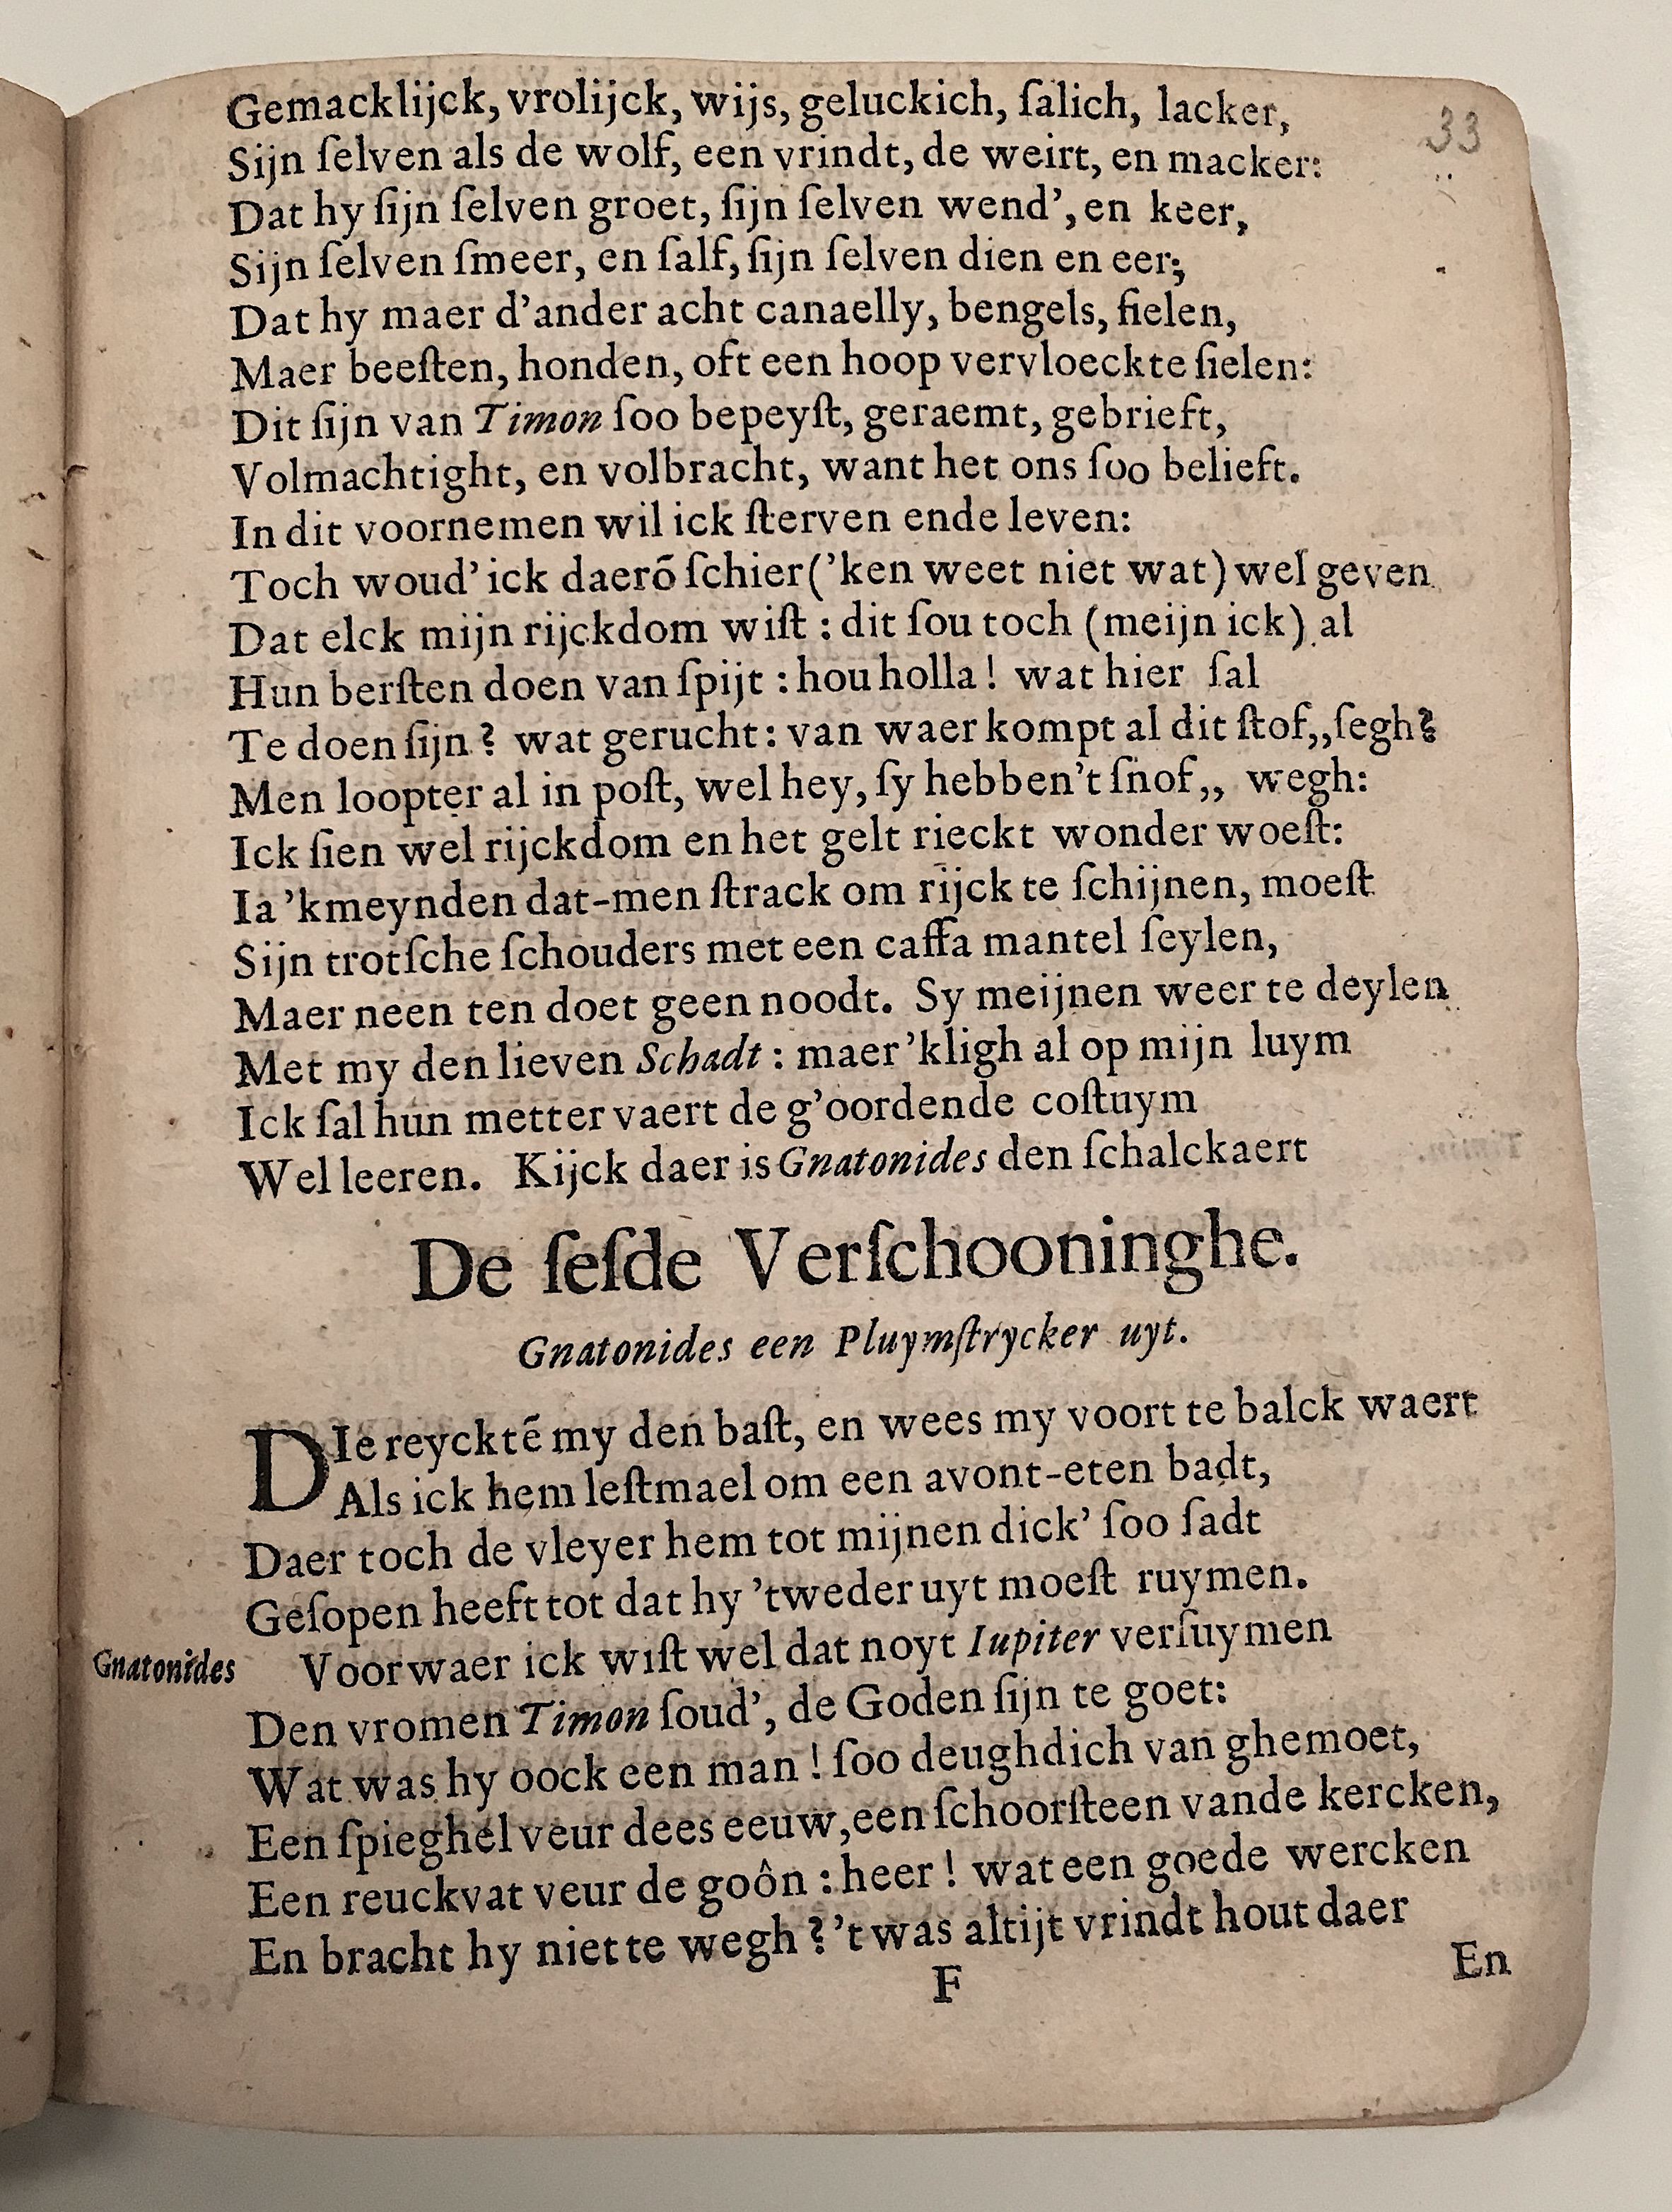 33
Gemacklijck, vrolijck, wijs, geluckich, ſalich, lacker,
Sijn ſelven als de wolf, een vrindt, de weirt, en macker:
Dat hy ſijn ſelven groet, ſijn ſelven wend', en keer,
Sijn ſelven ſmeer, en ſalf, ſijn ſelven dien en eer;
Dat hy maer d'ander acht canaelly, bengels, fielen,
Maer beeſten, honden, oft een hoop vervloeckte ſielen:
Dit ſijn van Timon ſoo bepeyſt, geraemt, gebrieft,
Volmachtight, en volbracht, want het ons ſoo belieft.
In dit voornemen wil ick ſterven ende leven:
Toch woud' ick daerõ ſchier ('ken weet niet wat) wel geven
Dat elck mijn rijckdom wiſt : dit ſou toch (meijn ick) al
Hun berſten doen van ſpijt : hou holla! wat hier ſal
Te doen ſijn? wat gerucht: van waer kompt al dit ſtof,,ſegh?
Men loopter al in poſt, wel hey, ſy hebben't ſnof,, wegh:
Ick ſien wel rijckdom en het gelt rieckt wonder woeſt:
Ia 'kmeynden dat-men ſtrack om rijck te ſchijnen, moeſt
Sijn trotſche ſchouders met een caffa mantel ſeylen,
Maer neen ten doet geen noodt. Sy meijnen weer te deylen
Met my den lieven Schadt : maer 'kligh al op mijn luym
Ick ſal hun metter vaert de g'oordende coſtuym
Wel leeren. Kijck daer is Gnatonides den ſchalckaert
De ſeſde Verſchooninghe.
Gnatonides een Pluymſtrycker uyt.
DIe reycktẽ my den baſt, en wees my voort te balck waert
Als ick hem leſtmael om een avont-eten badt,
Daer toch de vleyer hem tot mijnen dick' ſoo ſadt
Geſopen heeft tot dat hy 'tweder uyt moeſt ruymen.
Gnatonides Voorwaer ick wiſt wel dat noyt Iupiter verſuymen
Den vromen Timon ſoud', de Goden ſijn te goet:
Wat was hy oock een man! ſoo deughdich van ghemoet,
Een ſpieghel veur dees eeuw, een ſchoorſteen vande kercken,
Een reuckvat veur de goôn : heer! wat een goede wercken
En bracht hy niet te wegh? 't was altijt vrindt hout daer
F
En